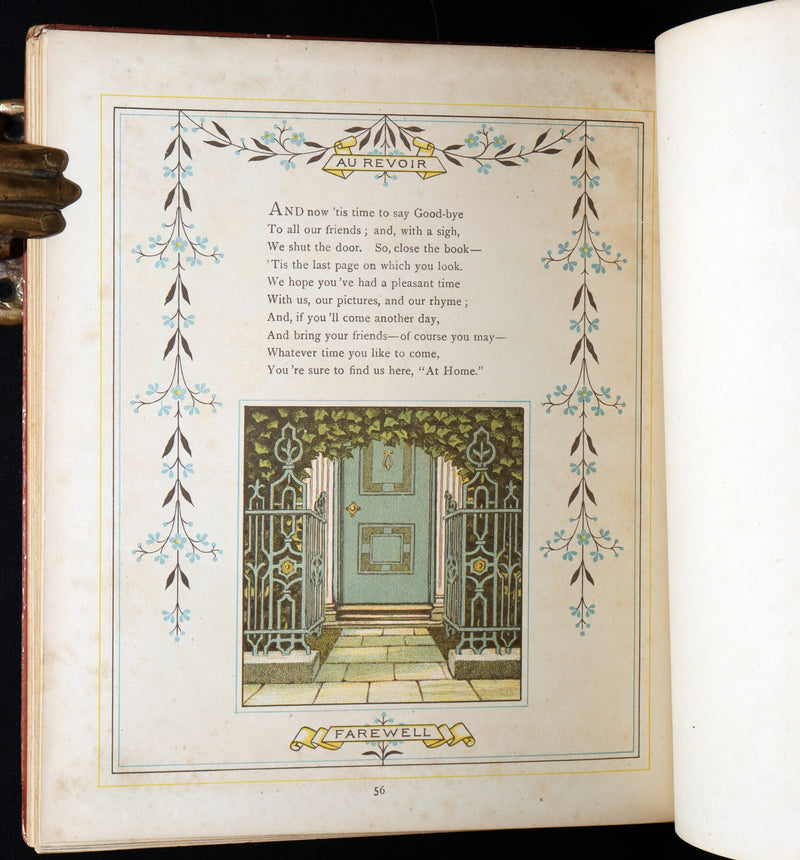 AU REVOIR
AND now 'tis time to say Good-bye
To all our friends; and, with a sigh,
We shut the door. So, close the book—
'Tis the last page on which you look.
We hope you've had a pleasant time
With us, our pictures, and our rhyme;
And, if you'll come another day,
And bring your friends—of course you may—
Whatever time you like to come,
You're sure to find us here, "At Home."
FAREWELL
56